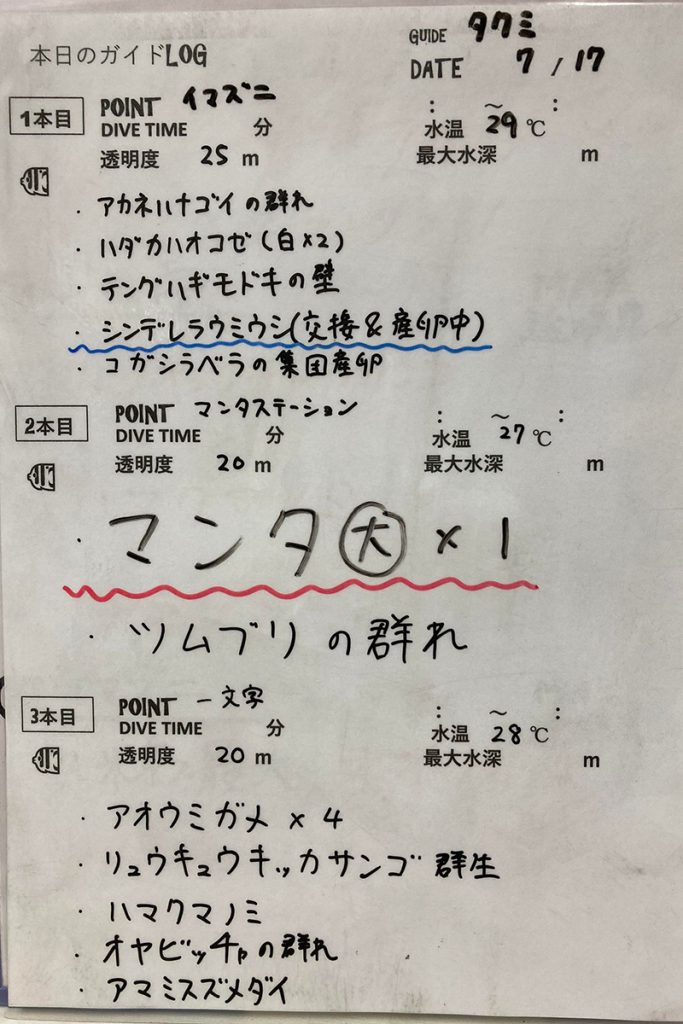 本日のガイドLOG
GUIDE タクミ
DATE 7 / 17
1本目 POINT イマズニ : ～ :
DIVE TIME 分 水温 29℃
透明度 25 m 最大水深 m
・アカネハナゴイの群れ
・ハダカハオコゼ(白×2)
・テングハギモドキの壁
・シンデレラウミウシ(交接&産卵中)
・コガシラベラの集団産卵
2本目 POINT マンタステーション : ～ :
DIVE TIME 分 水温 27℃
透明度 20 m 最大水深 m
・マンタ大×1
・ツムブリの群れ
3本目 POINT 一文字 : ～ :
DIVE TIME 分 水温 28℃
透明度 20 m 最大水深 m
・アオウミガメ×4
・リュウキュウキッカサンゴ 群生
・ハマクマノミ
・オヤビッチャの群れ
・アマミスズメダイ